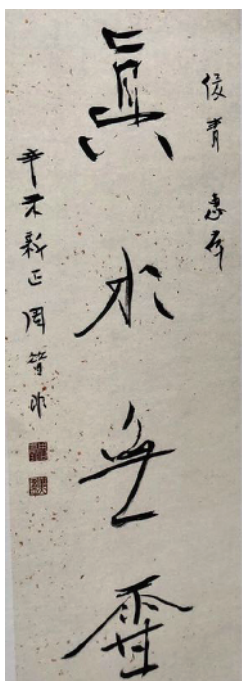 俊青 惠存
眞水無香
辛未新正周昔非